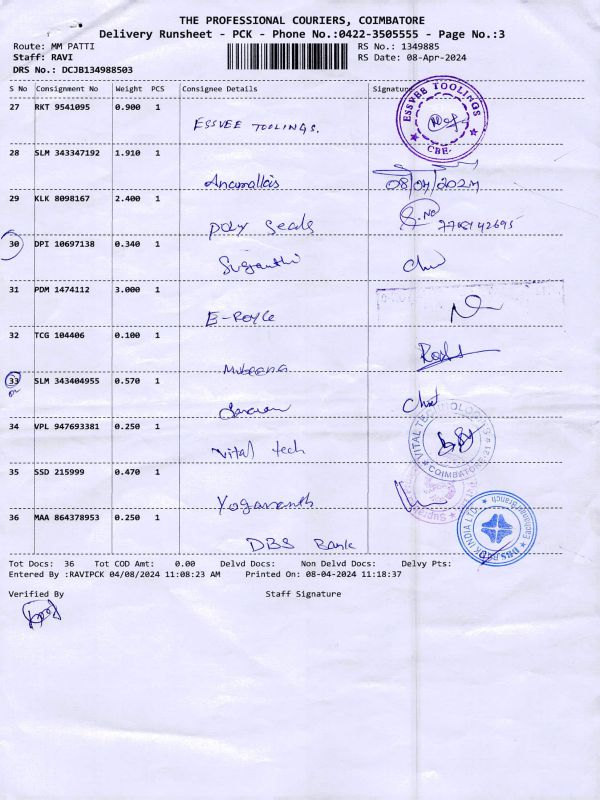 THE PROFESSIONAL COURIERS, COIMBATORE
Delivery Runsheet - PCK - Phone No.:0422-3505555 - Page No.:3
Route: MM PATTI RS No.: 1349885
Staff: RAVI RS Date: 08-Apr-2024
DRS No.: DCJB134988503
S No Consignment No Weight PCS Consignee Details Signature
27 RKT 9541095 0.900 1
ESSVEE TOOLINGS.
ESSVEE TOOLINGS
CBE-
28 SLM 343347192 1.910 1
Anamallais 08/04/2024
29 KLK 8098167 2.400 1
Poly Seals
30 DPI 10697138 0.340 1
Suganthi
31 PDM 1474112 3.000 1
E-Royce
32 TCG 104406 0.100 1
Mubeena
33 SLM 343404955 0.570 1
34 VPL 947693381 0.250 1
Vital tech
VITAL TECHNOLOGIES
COIMBATORE-21
35 SSD 215999 0.470 1
Yogananth
36 MAA 864378953 0.250 1
DBS Bank
DBS BANK INDIA LTD.
Tot Docs: 36 Tot COD Amt: 0.00 Delvd Docs: Non Delvd Docs: Delvy Pts:
Entered By :RAVIPCK 04/08/2024 11:08:23 AM Printed On: 08-04-2024 11:18:37
Verified By Staff Signature